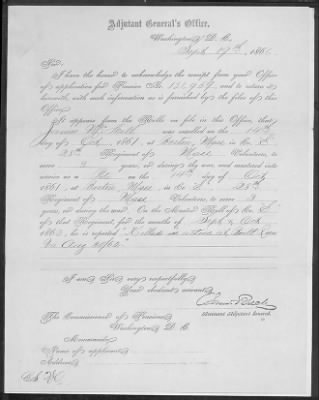 Adjutant General's Office,
Washington, D. C.
Sept 19th, 1867
Sir:
I have the honor to acknowledge the receipt from your Office
of application for Pension No. 130939, and to return it
herewith, with such information as is furnished by the files of this
Office.
It appears from the Rolls on file in this Office, that
James was enrolled on the 14th
day of Oct, 1861, at Boston, Mass in Co. E,
25th Regiment of Mass Volunteers, to
serve 3 years, or during the war, and mustered into
service as a Pvt on the 14th day of Oct,
1861, at Boston, Mass, in Co. E, 25th
Regiment of Mass Volunteers, to serve 3
years, or during the war. On the Muster Roll of Co. E
of that Regiment, for the months of Sept & Oct,
1862, he is reported "Killed in
Aug
I am, Sir, very respectfully,
Your obedient servant,
Assistant Adjutant General.
The Commissioner of Pensions,
Washington, D. C.
Memoranda:
Name of applicant
Address